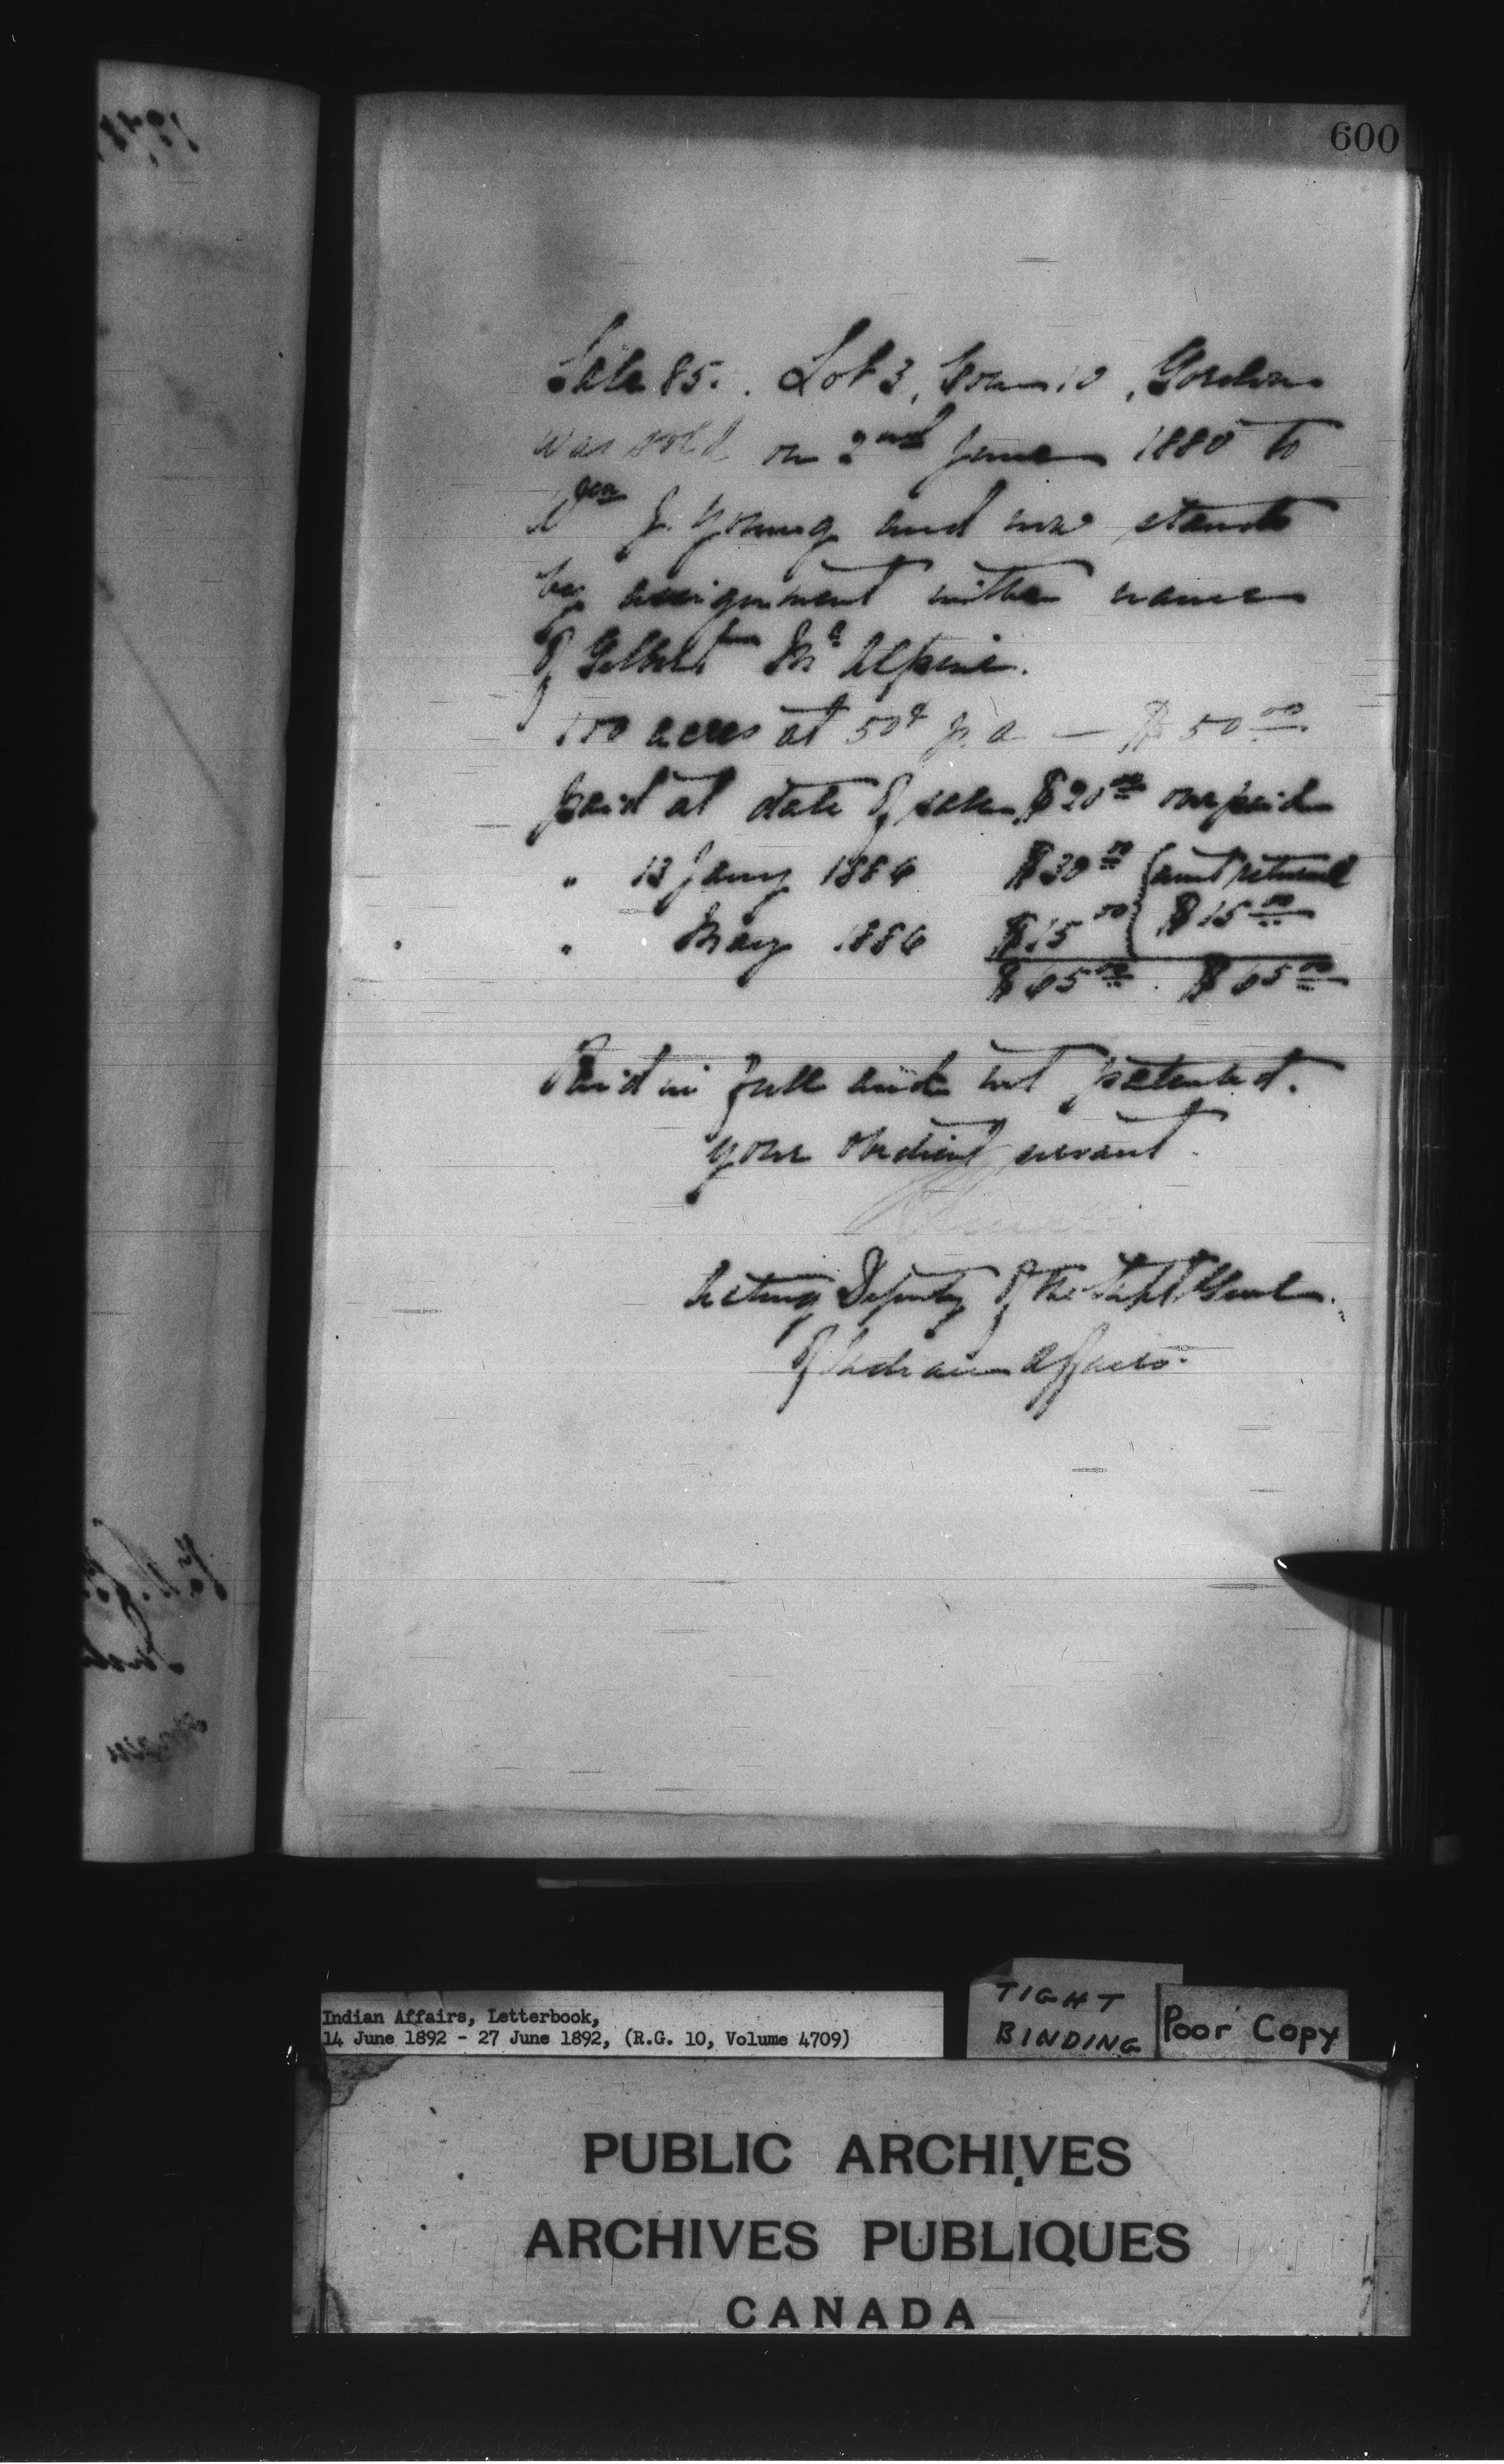 600
Sale 85. Lot 3, Con 10, Gordon
was sold on 2nd June 1880 to
J. Young and now stands
by assignment in the name
of Gilbert McAlpine.
100 acres at 50¢ p. a — $50.00
paid at date of sale $20.00 overpaid
" 13 Jany 1886 $30.00 (amt returned
" May 1886 $15.00 ( $15.00
$65.00 $65.00
Paid in full and not patented.
your obedient servant.
Acting Deputy of the Supt. Genl.
of Indian Affairs.
Indian Affairs, Letterbook,
14 June 1892 - 27 June 1892, (R.G. 10, Volume 4709)
TIGHT
BINDING
Poor Copy
PUBLIC ARCHIVES
ARCHIVES PUBLIQUES
CANADA